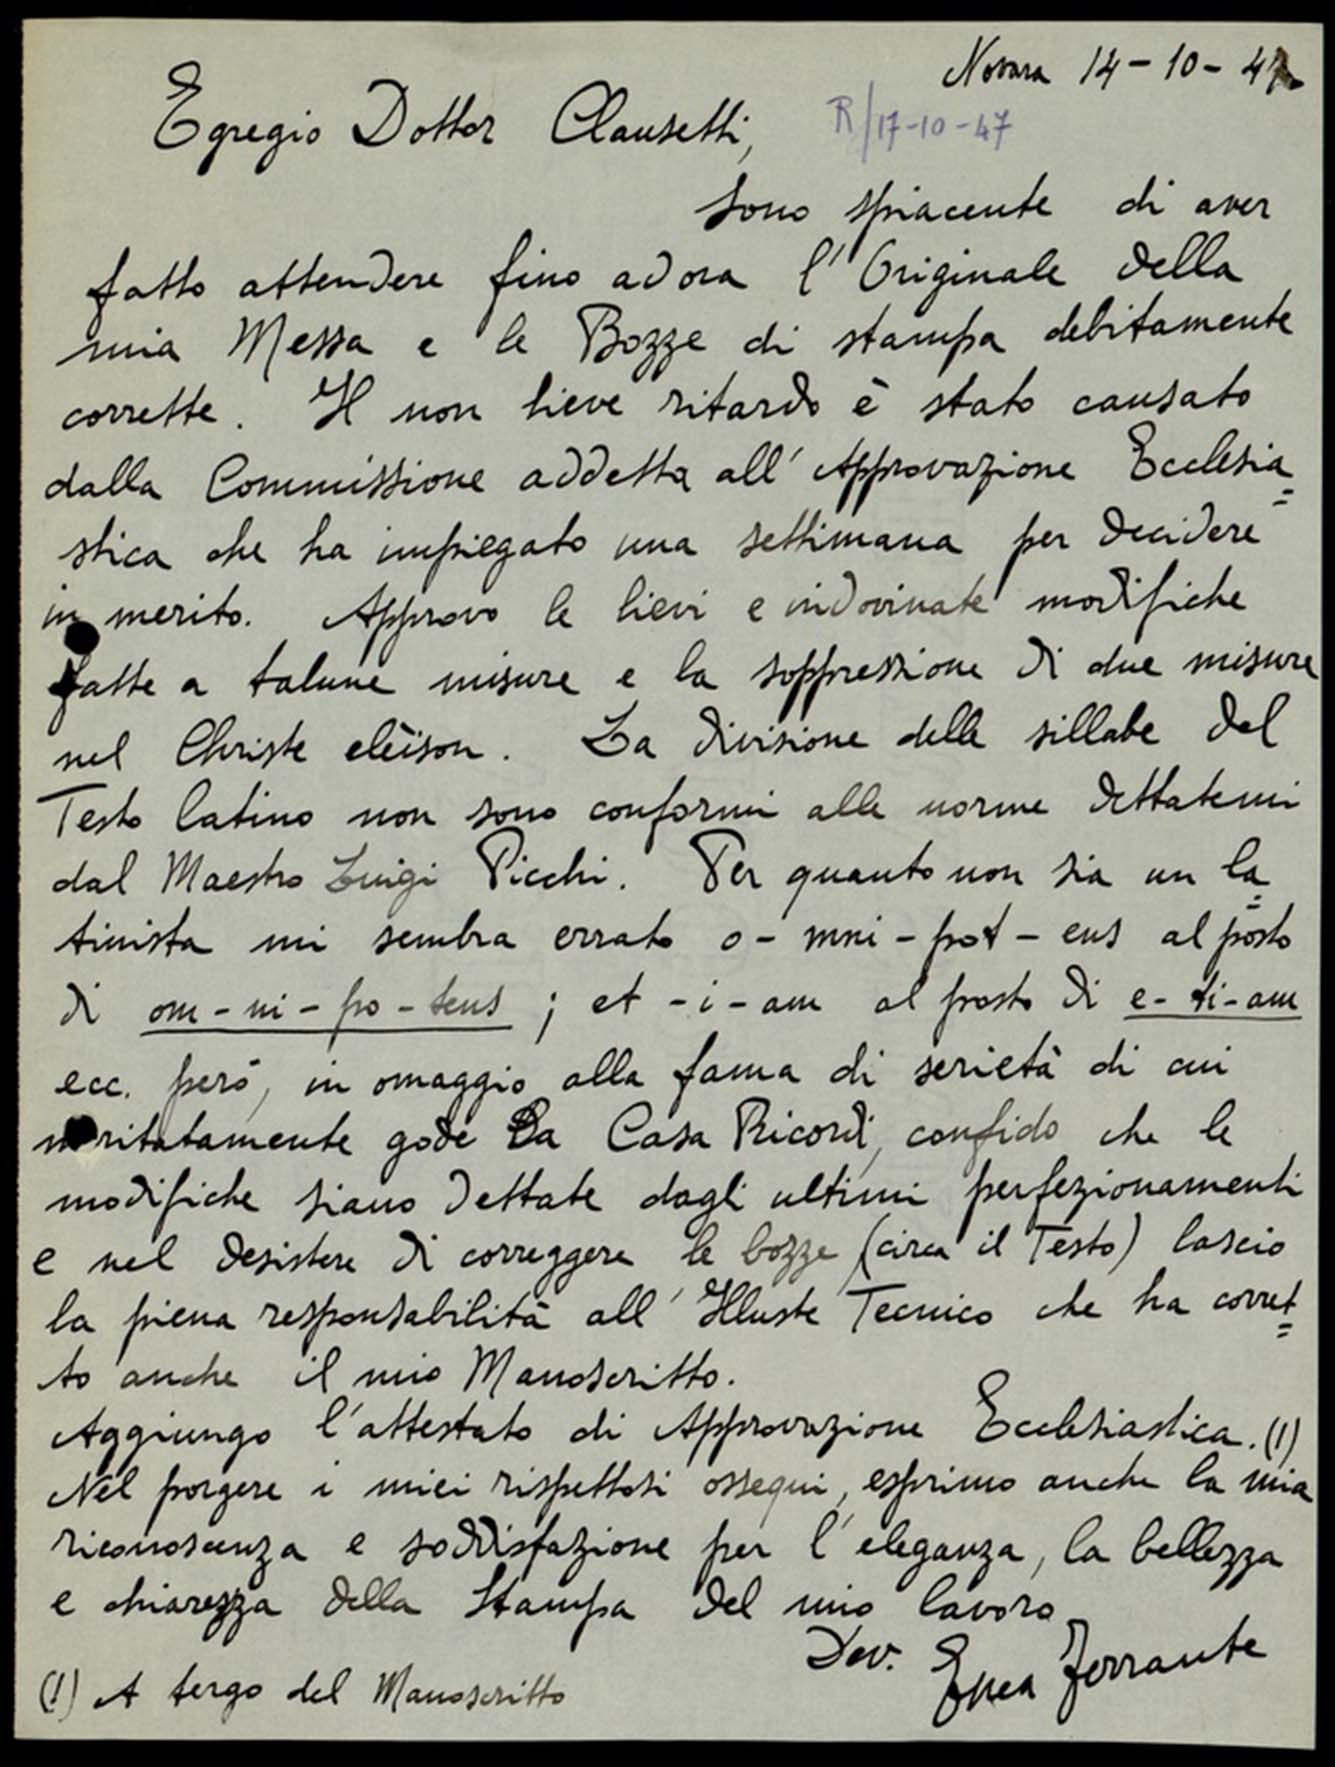 Novara 14-10-47
Egregio Dottor Clausetti,
R/17-10-47
sono spiacente di aver
fatto attendere fino adora l'Originale della
mia Messa e le Bozze di stampa debitamente
corrette. Il non lieve ritardo è stato causato
dalla Commissione addetta all'Approvazione Ecclesia=
stica che ha impiegato una settimana per decidere
in merito. Approvo le lievi e indovinate modifiche
fatte a talune misure e la soppressione di due misure
nel Christe elèison. La divisione delle sillabe del
Testo latino non sono conformi alle norme dettatemi
dal Maestro Luigi Picchi. Per quanto non sia un la=
tinista mi sembra errato o-mni-pot-ens al posto
di om-ni-po-tens; et-i-am al posto di e-ti-am
ecc. però, in omaggio alla fama di serietà di cui
meritatamente gode la Casa Ricordi, confido che le
modifiche siano dettate dagli ultimi perfezionamenti
e nel desistere di correggere le bozze (circa il Testo) lascio
la piena responsabilità all'Illuste Tecnico che ha corret=
to anche il mio Manoscritto.
Aggiungo l'attestato di Approvazione Ecclesiastica. (1)
Nel porgere i miei rispettosi ossequi, esprimo anche la mia
riconoscenza e soddisfazione per l'eleganza, la bellezza
e chiarezza della Stampa del mio lavoro
Dev. Enea Ferrante
(1) A tergo del Manoscritto